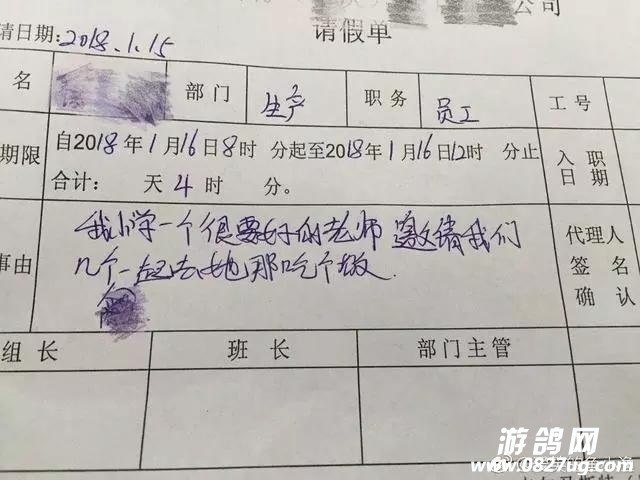 公司
请假单
请日期:2018.1.15
名 部门 生产 职务 员工 工号
期限 自2018年1月16日8时 分起至2018年1月16日12时 分止 入职日期
合计: 天4时 分。
事由 我小学一个很要好的老师邀请我们
几个一起去她那吃个饭
代理人
签名
确认
组长 班长 部门主管
游鸽网
www.0827ug.com